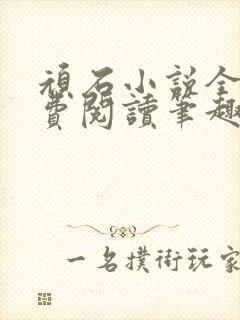 頑石小說全
費閱讀筆趣
一名撲街玩家